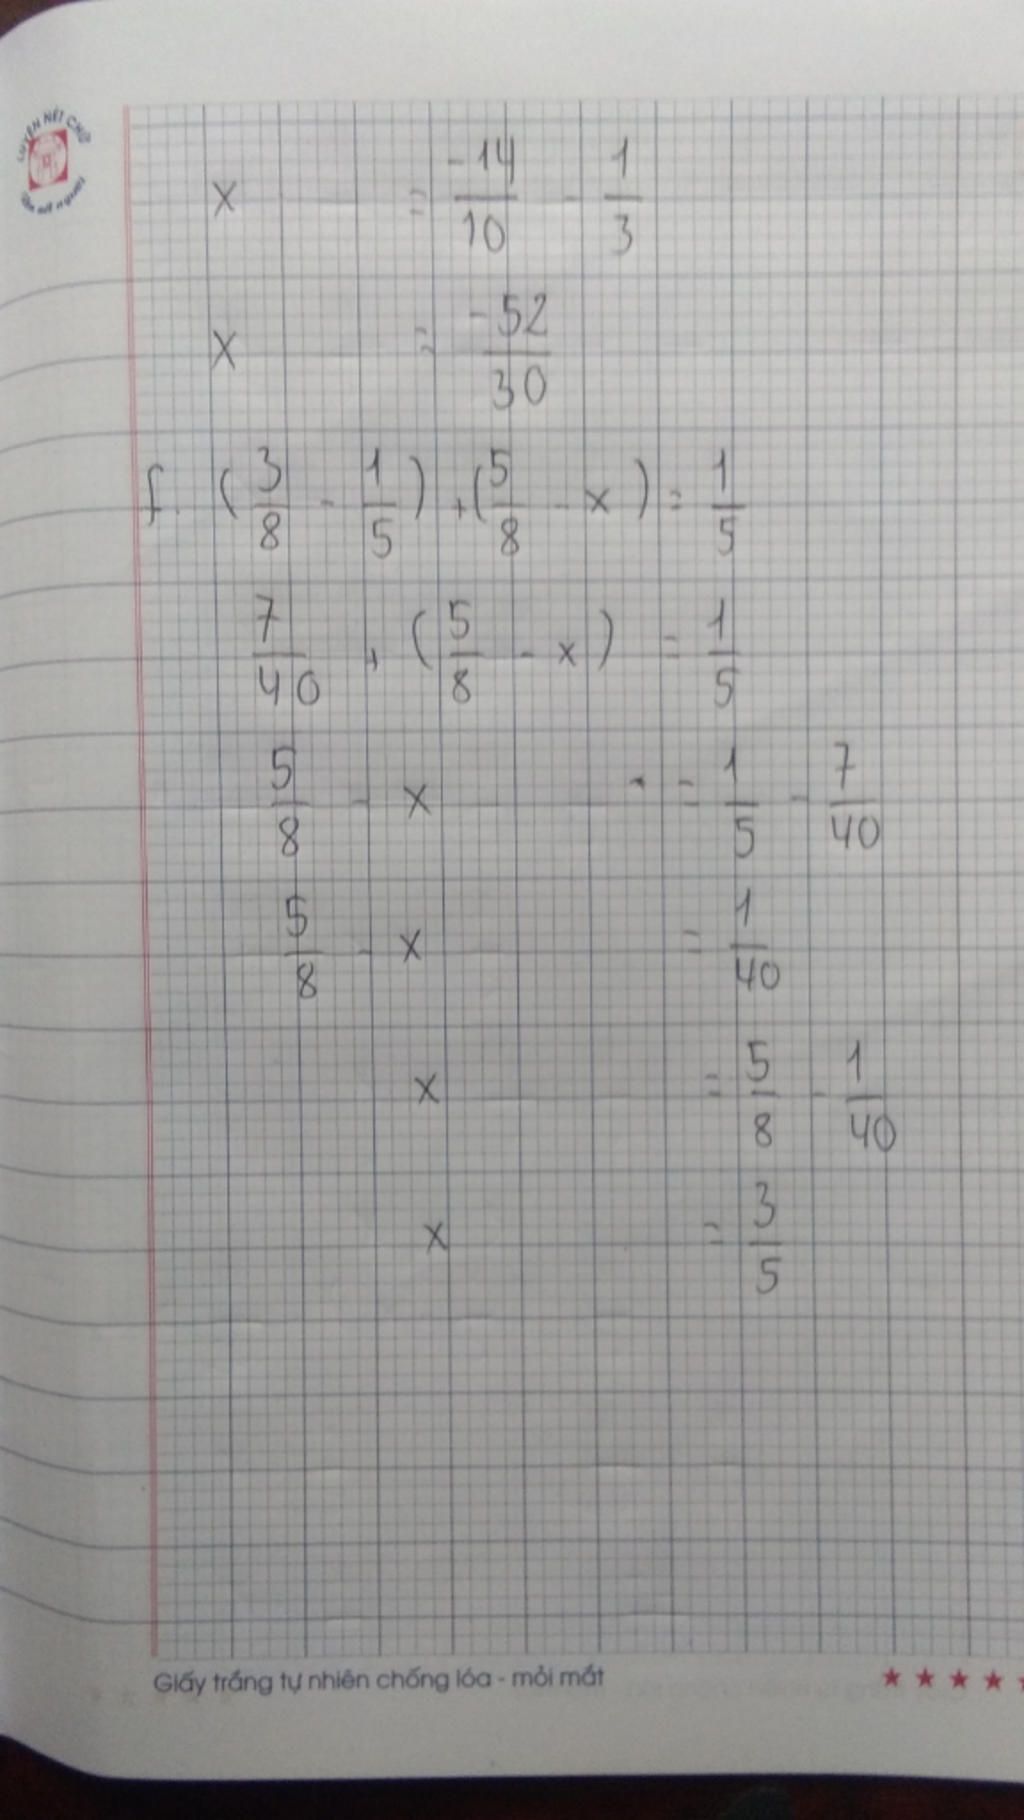 LUYỆN NÉT CHỮ
x = -14/10 - 1/3
x = -52/30
f. (3/8 - 1/5) + (5/8 - x) = 1/5
7/40 + (5/8 - x) = 1/5
5/8 - x = 1/5 - 7/40
5/8 - x = 1/40
x = 5/8 - 1/40
x = 3/5
Giấy trắng tự nhiên chống lóa - mỏi mắt